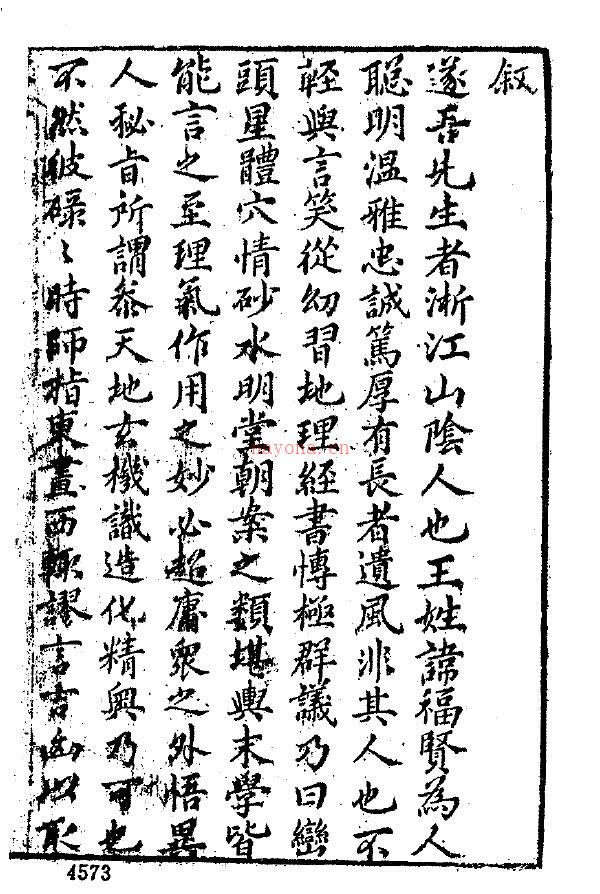 叙
遂吾先生者浙江山陰人也王姓諱福賢為人
聰明溫雅忠誠篤厚有長者遺風非其人也不
輕與言笑從幼習地理經書愽極群議乃曰巒
頭星體穴情砂水明堂朝案之類堪輿末學皆
能言之至理氣作用之妙必超庸衆之外悟異
人秘旨所謂叅天地玄機識造化精奥乃可也
不然彼碌〻時師指東畫西輙謬言吉凶以取
nayona.cn
4573